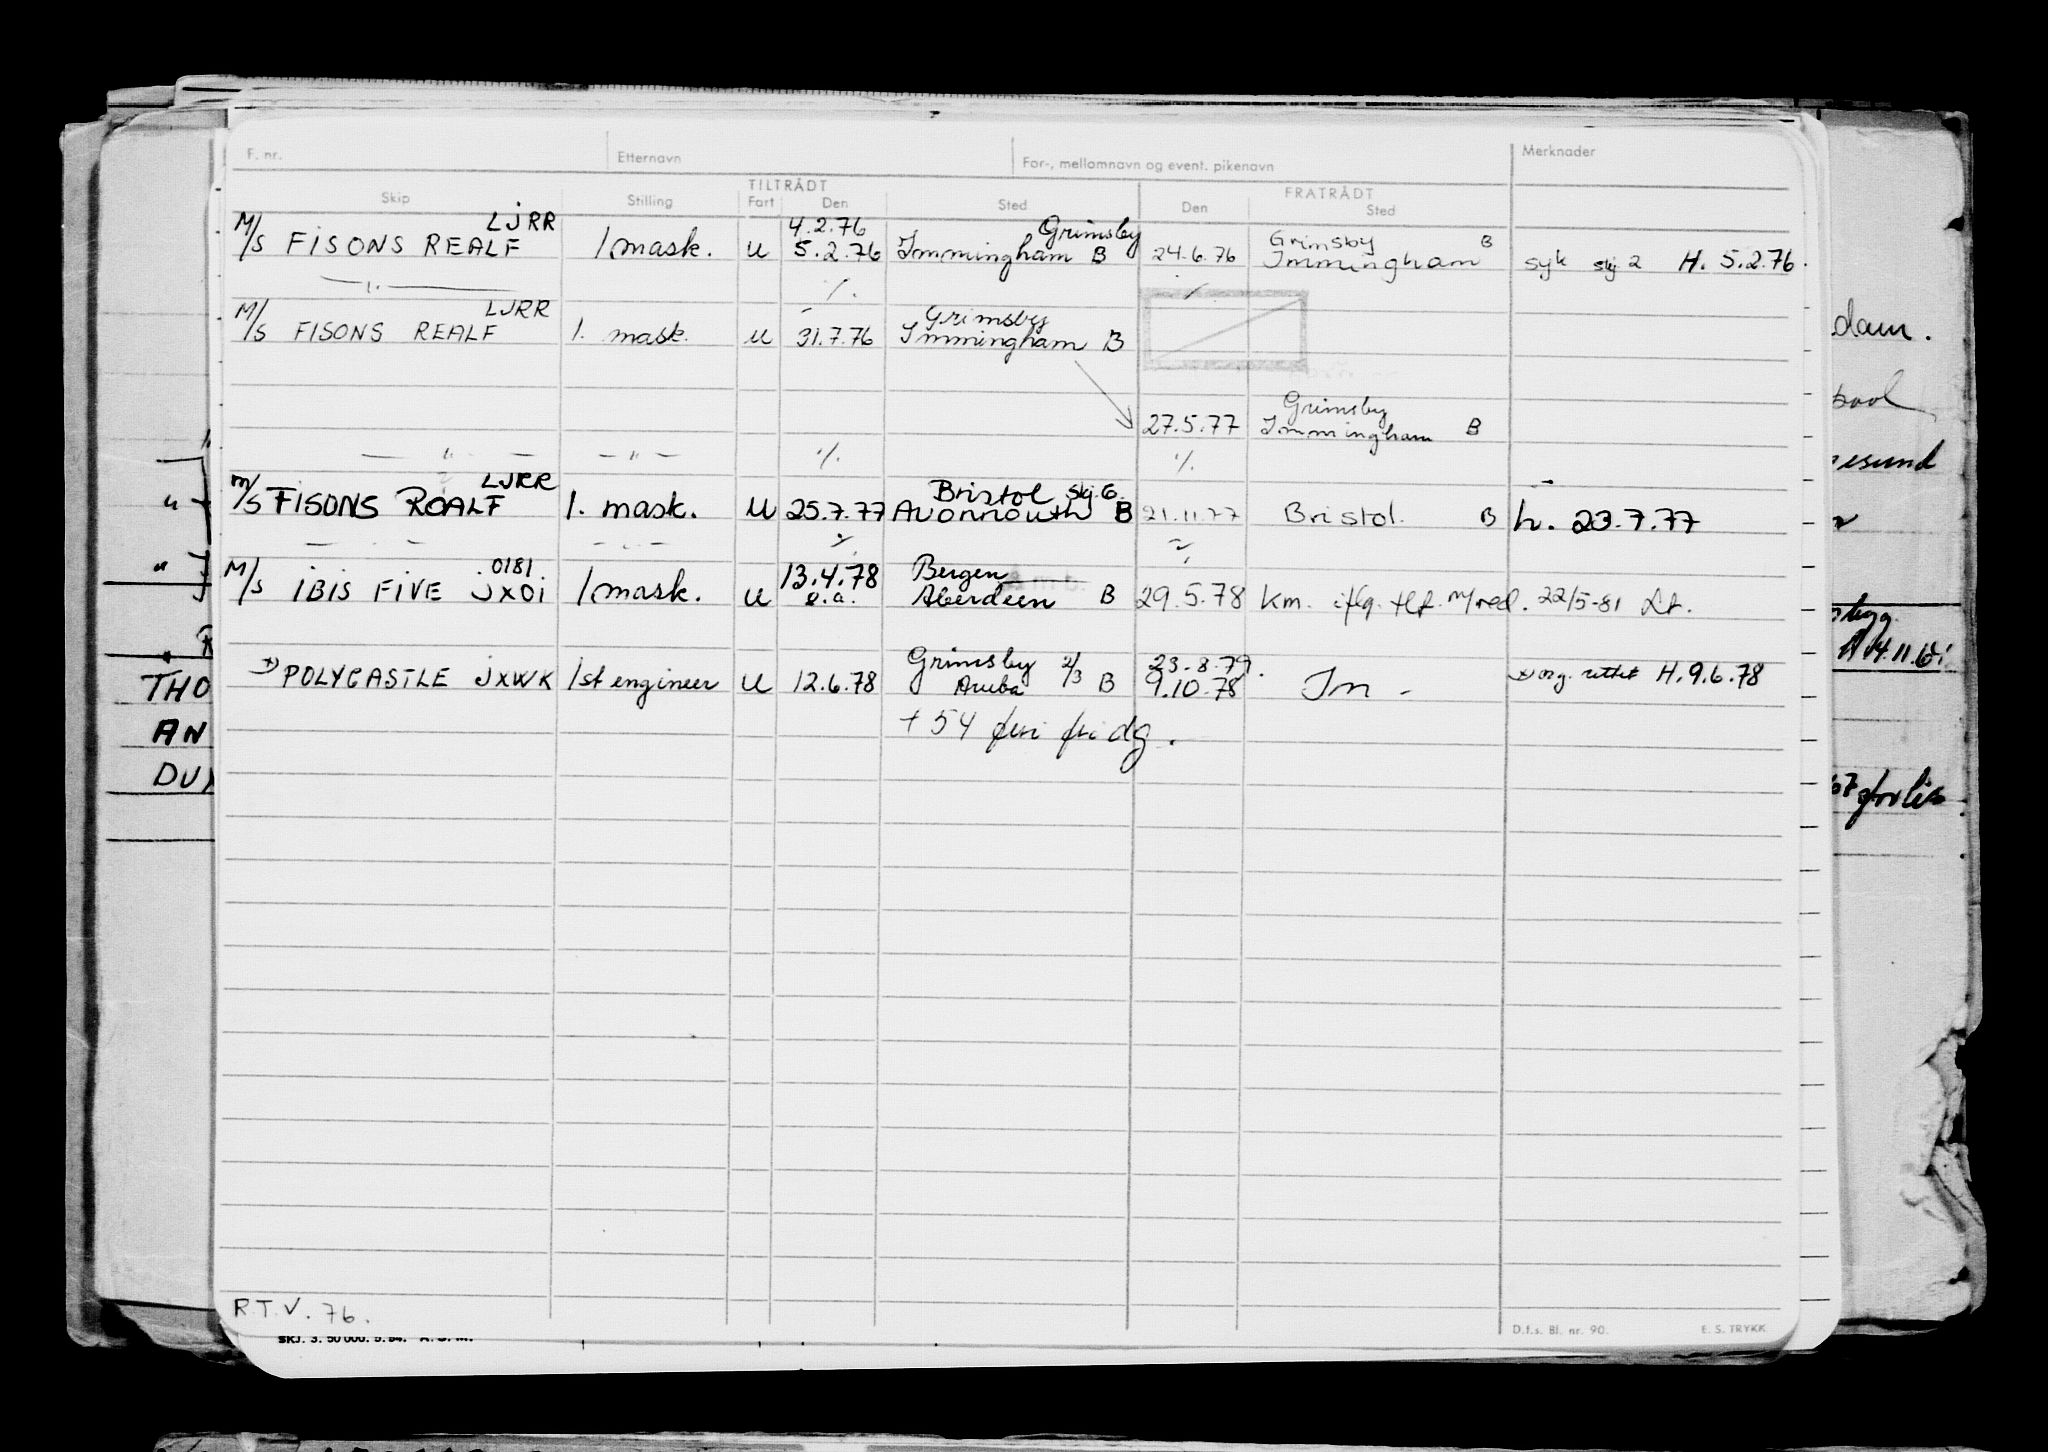 F. nr. Etternavn For-, mellomnavn og event. pikenavn Merknader
TILTRÅDT FRATRÅDT
Skip Stilling Fart Den Sted Den Sted
LJRR 4.2.76 Grimsby Grimsby B
M/S FISONS REALF 1 mask. U 5.2.76 Immingham B 24.6.76 Immingham syk skj 2 H. 5.2.76.
— " — ·/. ·/.
LJRR Grimsby
M/S FISONS REALF 1. mask. U 31.7.76 Immingham B
Grimsby
27.5.77 Immingham B
— " — — " — ·/. ·/.
LJRR Bristol skj. 6.
M/S FISONS ROALF 1. mask. U 25.7.77 Avonmouth B 21.11.77 Bristol. B h. 23.7.77
0181 13.4.78 Bergen
M/S IBIS FIVE JXOI 1 mask. U e.a. Aberdeen B 29.5.78 Km. iflg. tlf. m/red. 22/5-81 Lt.
Grimsby 2/3 23.8.79.
x) POLYCASTLE JXWK 1st engineer U 12.6.78 Aruba B 9.10.78 Im - x) org. rettet H. 9.6.78
+ 54 fri dg.
R.T.V. 76.
D.f.s. Bl. nr. 90. E. S. TRYKK
SKJ. 3. 50 000. 5. 54. A. S. M.
dam.
pool
esund
THO
AN
DU